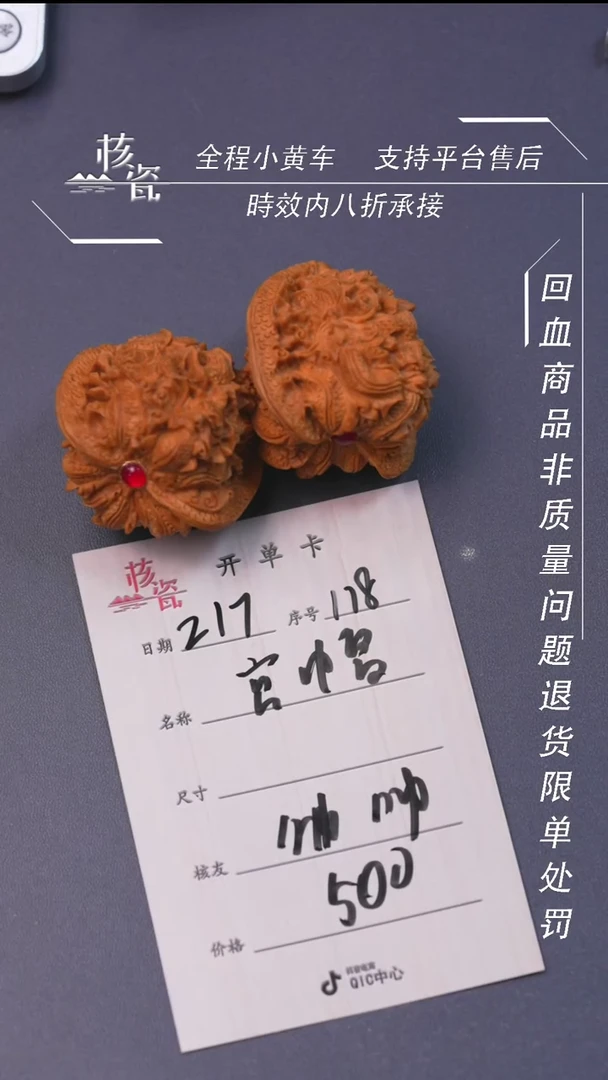 核瓷
全程小黄车 支持平台售后
時效内八折承接
回血商品非质量问题退货限单处罚
核瓷
开单卡
日期 217 序号 118
名称 官帽
尺寸
核友
价格 500
抖音电商
QIC中心